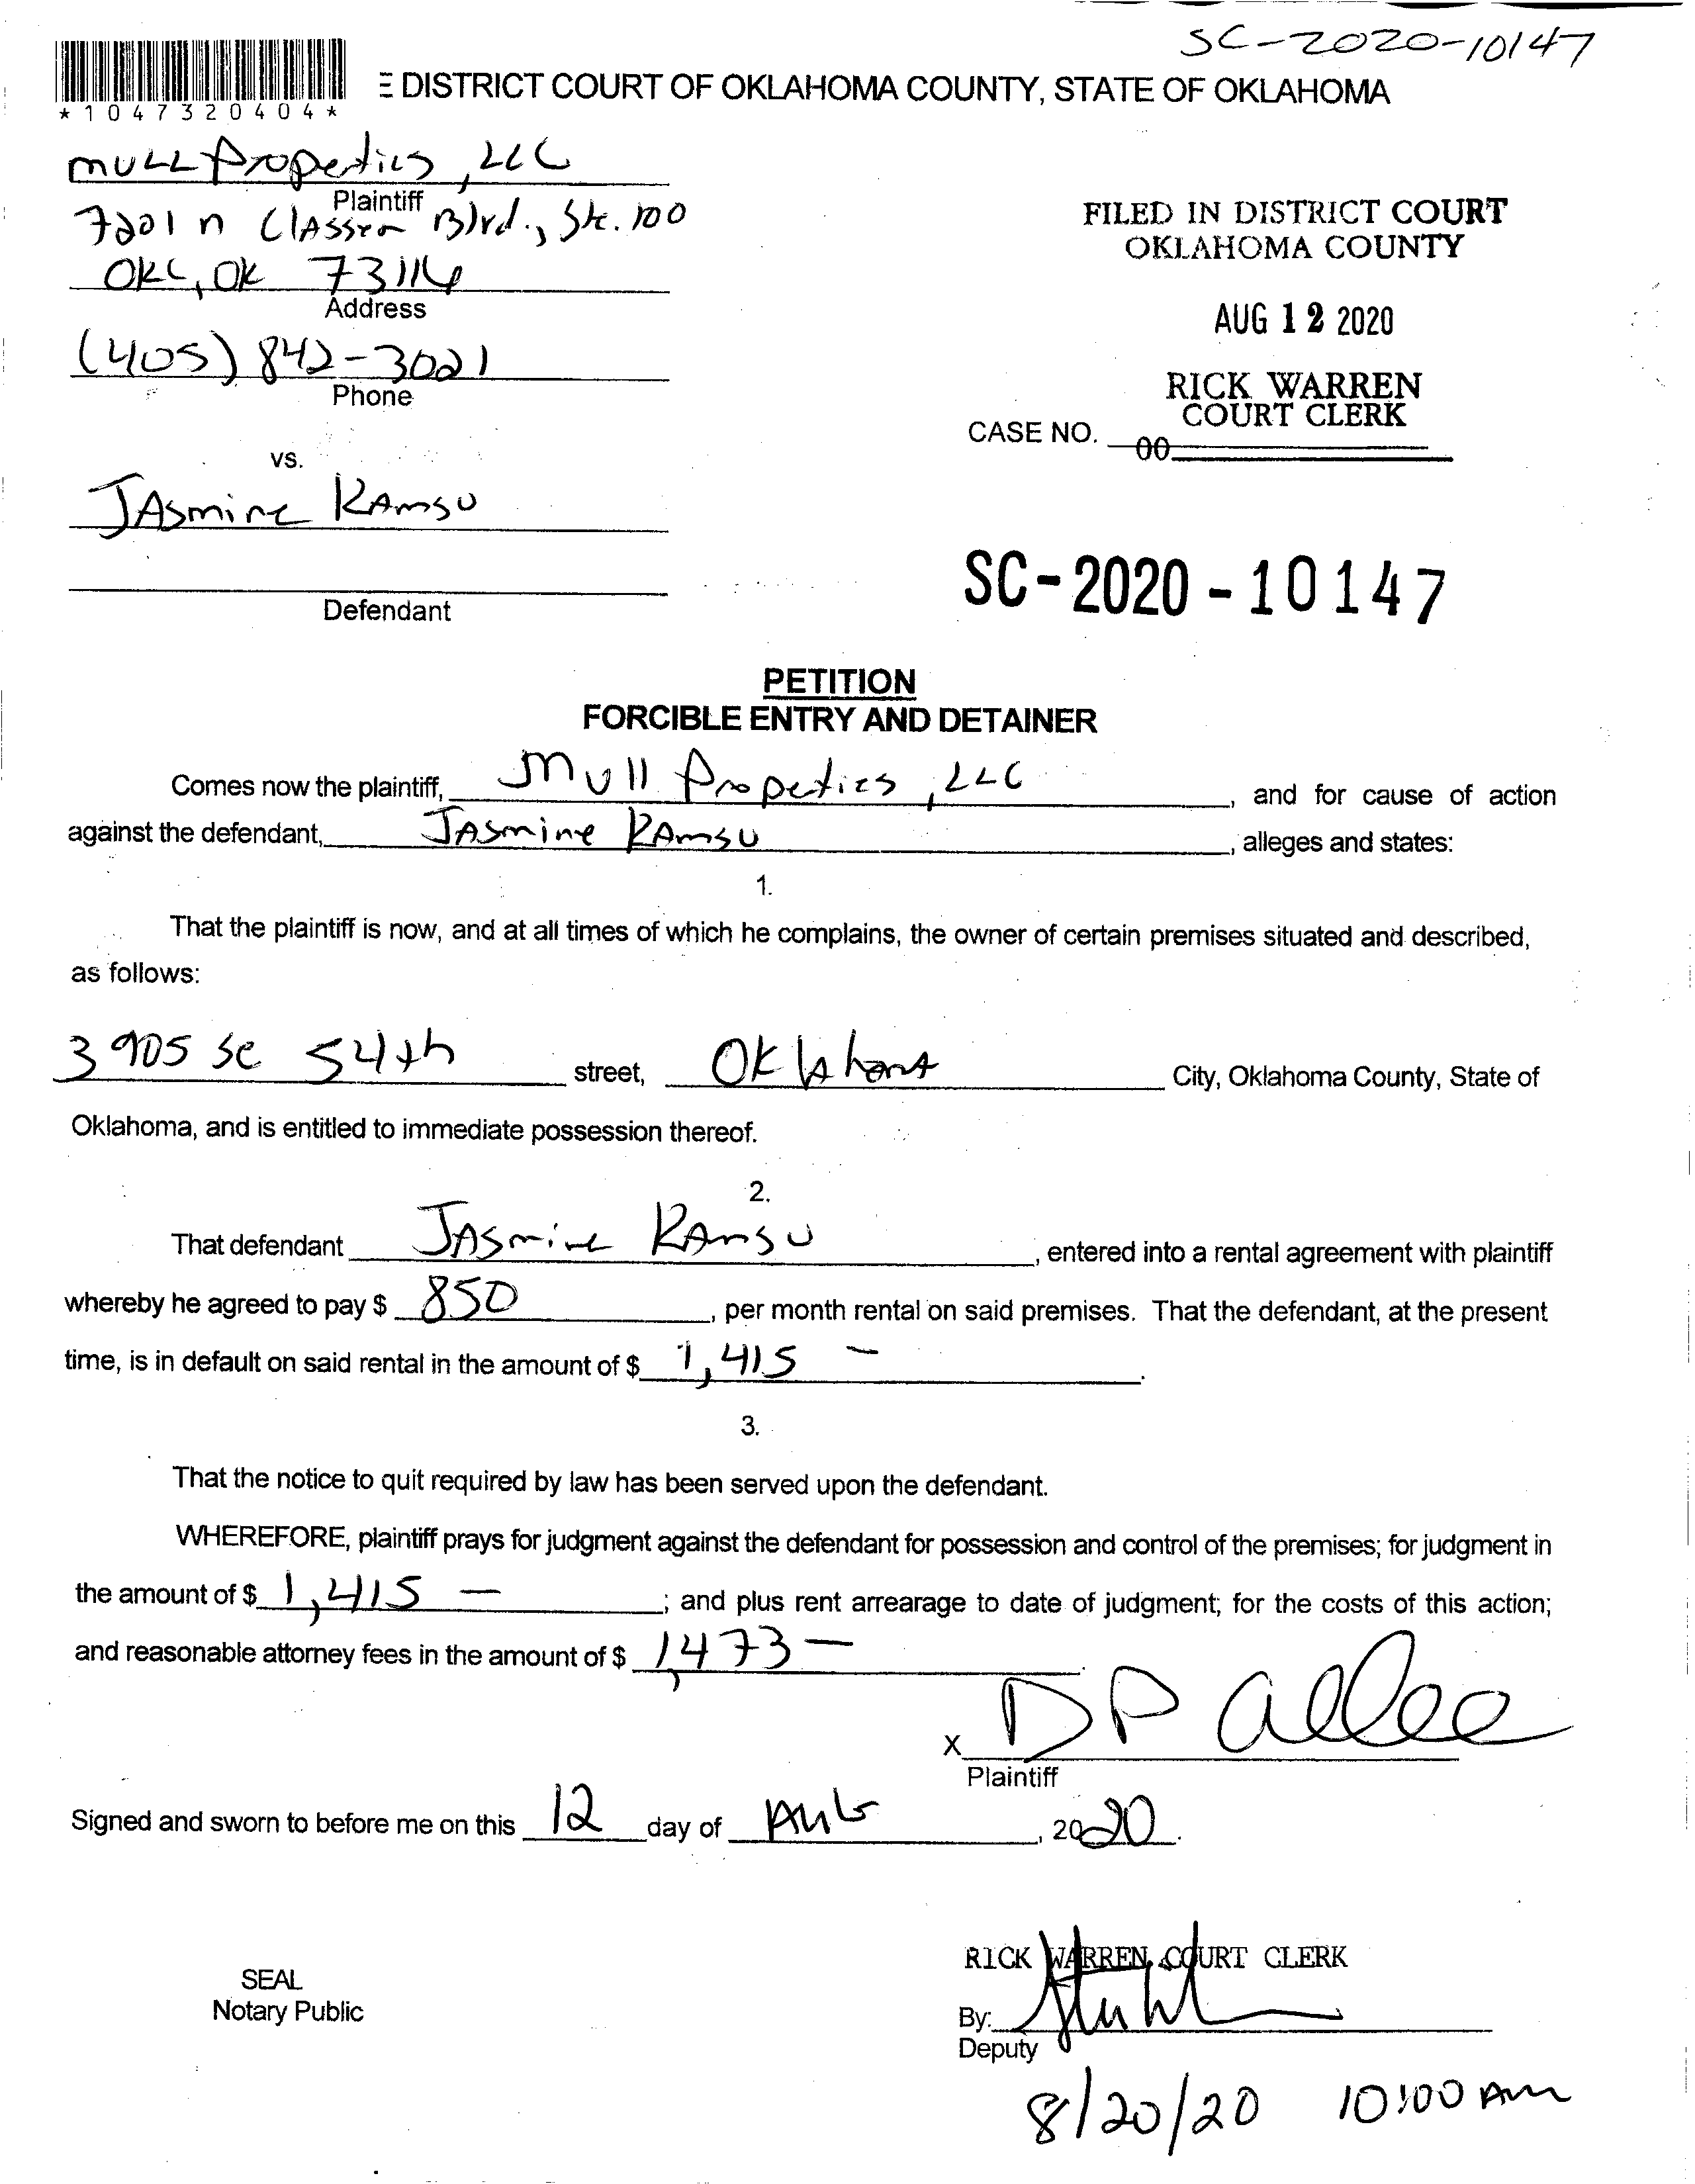 SC-2020-10147
E DISTRICT COURT OF OKLAHOMA COUNTY, STATE OF OKLAHOMA
*1047320404*
MULL Properties, LLC
Plaintiff
7201 N Classen Blvd., Ste. 100
OKC, OK 73116
Address
(405) 842-3021
Phone
FILED IN DISTRICT COURT
OKLAHOMA COUNTY
AUG 12 2020
RICK WARREN
COURT CLERK
CASE NO.
00
vs.
JAsmine RAmsu
Defendant
SC-2020-10147
PETITION
FORCIBLE ENTRY AND DETAINER
Comes now the plaintiff, Mull Properties, LLC, and for cause of action
against the defendant, JAsmine RAmsu, alleges and states:
1.
That the plaintiff is now, and at all times of which he complains, the owner of certain premises situated and described,
as follows:
3905 SE 54th street, Oklahoma City, Oklahoma County, State of
Oklahoma, and is entitled to immediate possession thereof.
2.
That defendant JAsmine RAmsu, entered into a rental agreement with plaintiff
whereby he agreed to pay $ 850, per month rental on said premises. That the defendant, at the present
time, is in default on said rental in the amount of $ 1,415 –.
3.
That the notice to quit required by law has been served upon the defendant.
WHEREFORE, plaintiff prays for judgment against the defendant for possession and control of the premises; for judgment in
the amount of $ 1,415 –; and plus rent arrearage to date of judgment; for the costs of this action;
and reasonable attorney fees in the amount of $ 1,473 –.
X DP Allee
Plaintiff
Signed and sworn to before me on this 12 day of AUG, 2020.
RICK WARREN, COURT CLERK
SEAL
Notary Public
By:
Deputy
8/20/20 10:00 AM